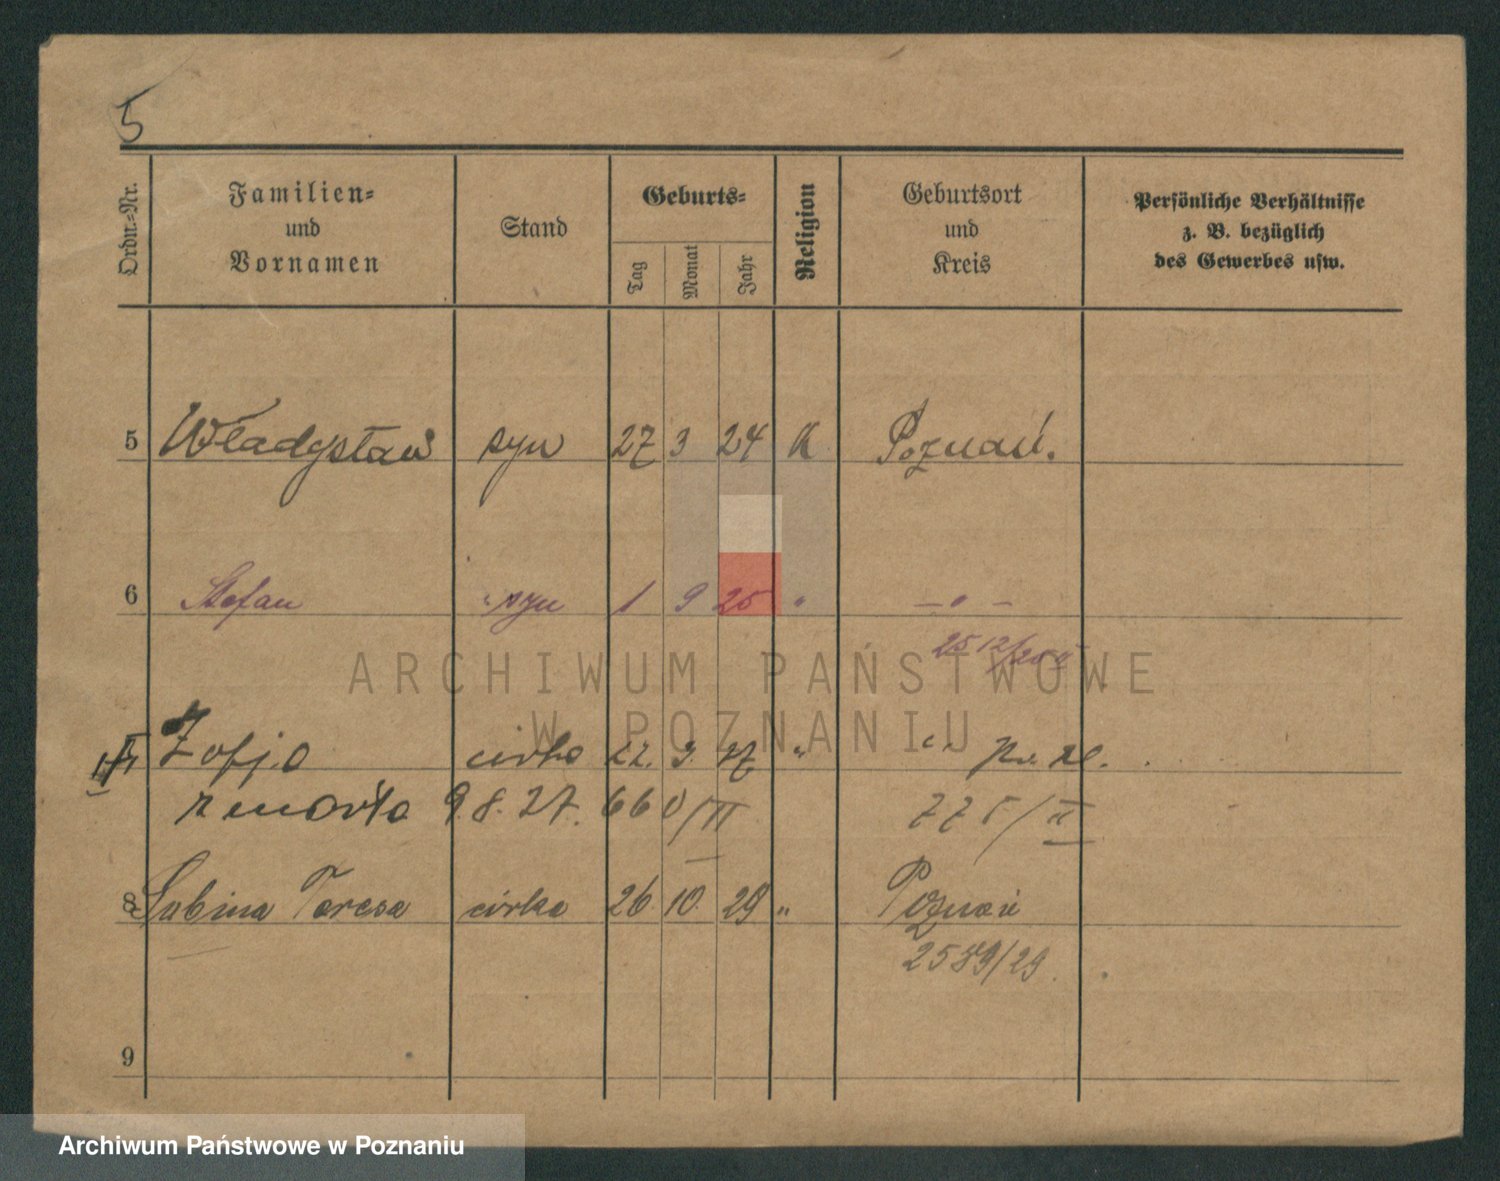 5
Ordn.-Nr. Familien- und Vornamen Stand Geburts- Tag Monat Jahr Religion Geburtsort und Kreis Persönliche Verhältnisse z. B. bezüglich des Gewerbes usw.
5 Władysław syn 27 3 24 K Poznań.
6 Stefan " syn 1 9 25 " — " —
25 12/25
ARCHIWUM PAŃSTWOWE
W POZNANIU
Zofja córka 22. 3. 27 " "
zmarła 9.8.27. 660/II 775/II
8 Sabina Teresa córka 26 10. 29 " Poznań
2589/29.
9
Archiwum Państwowe w Poznaniu